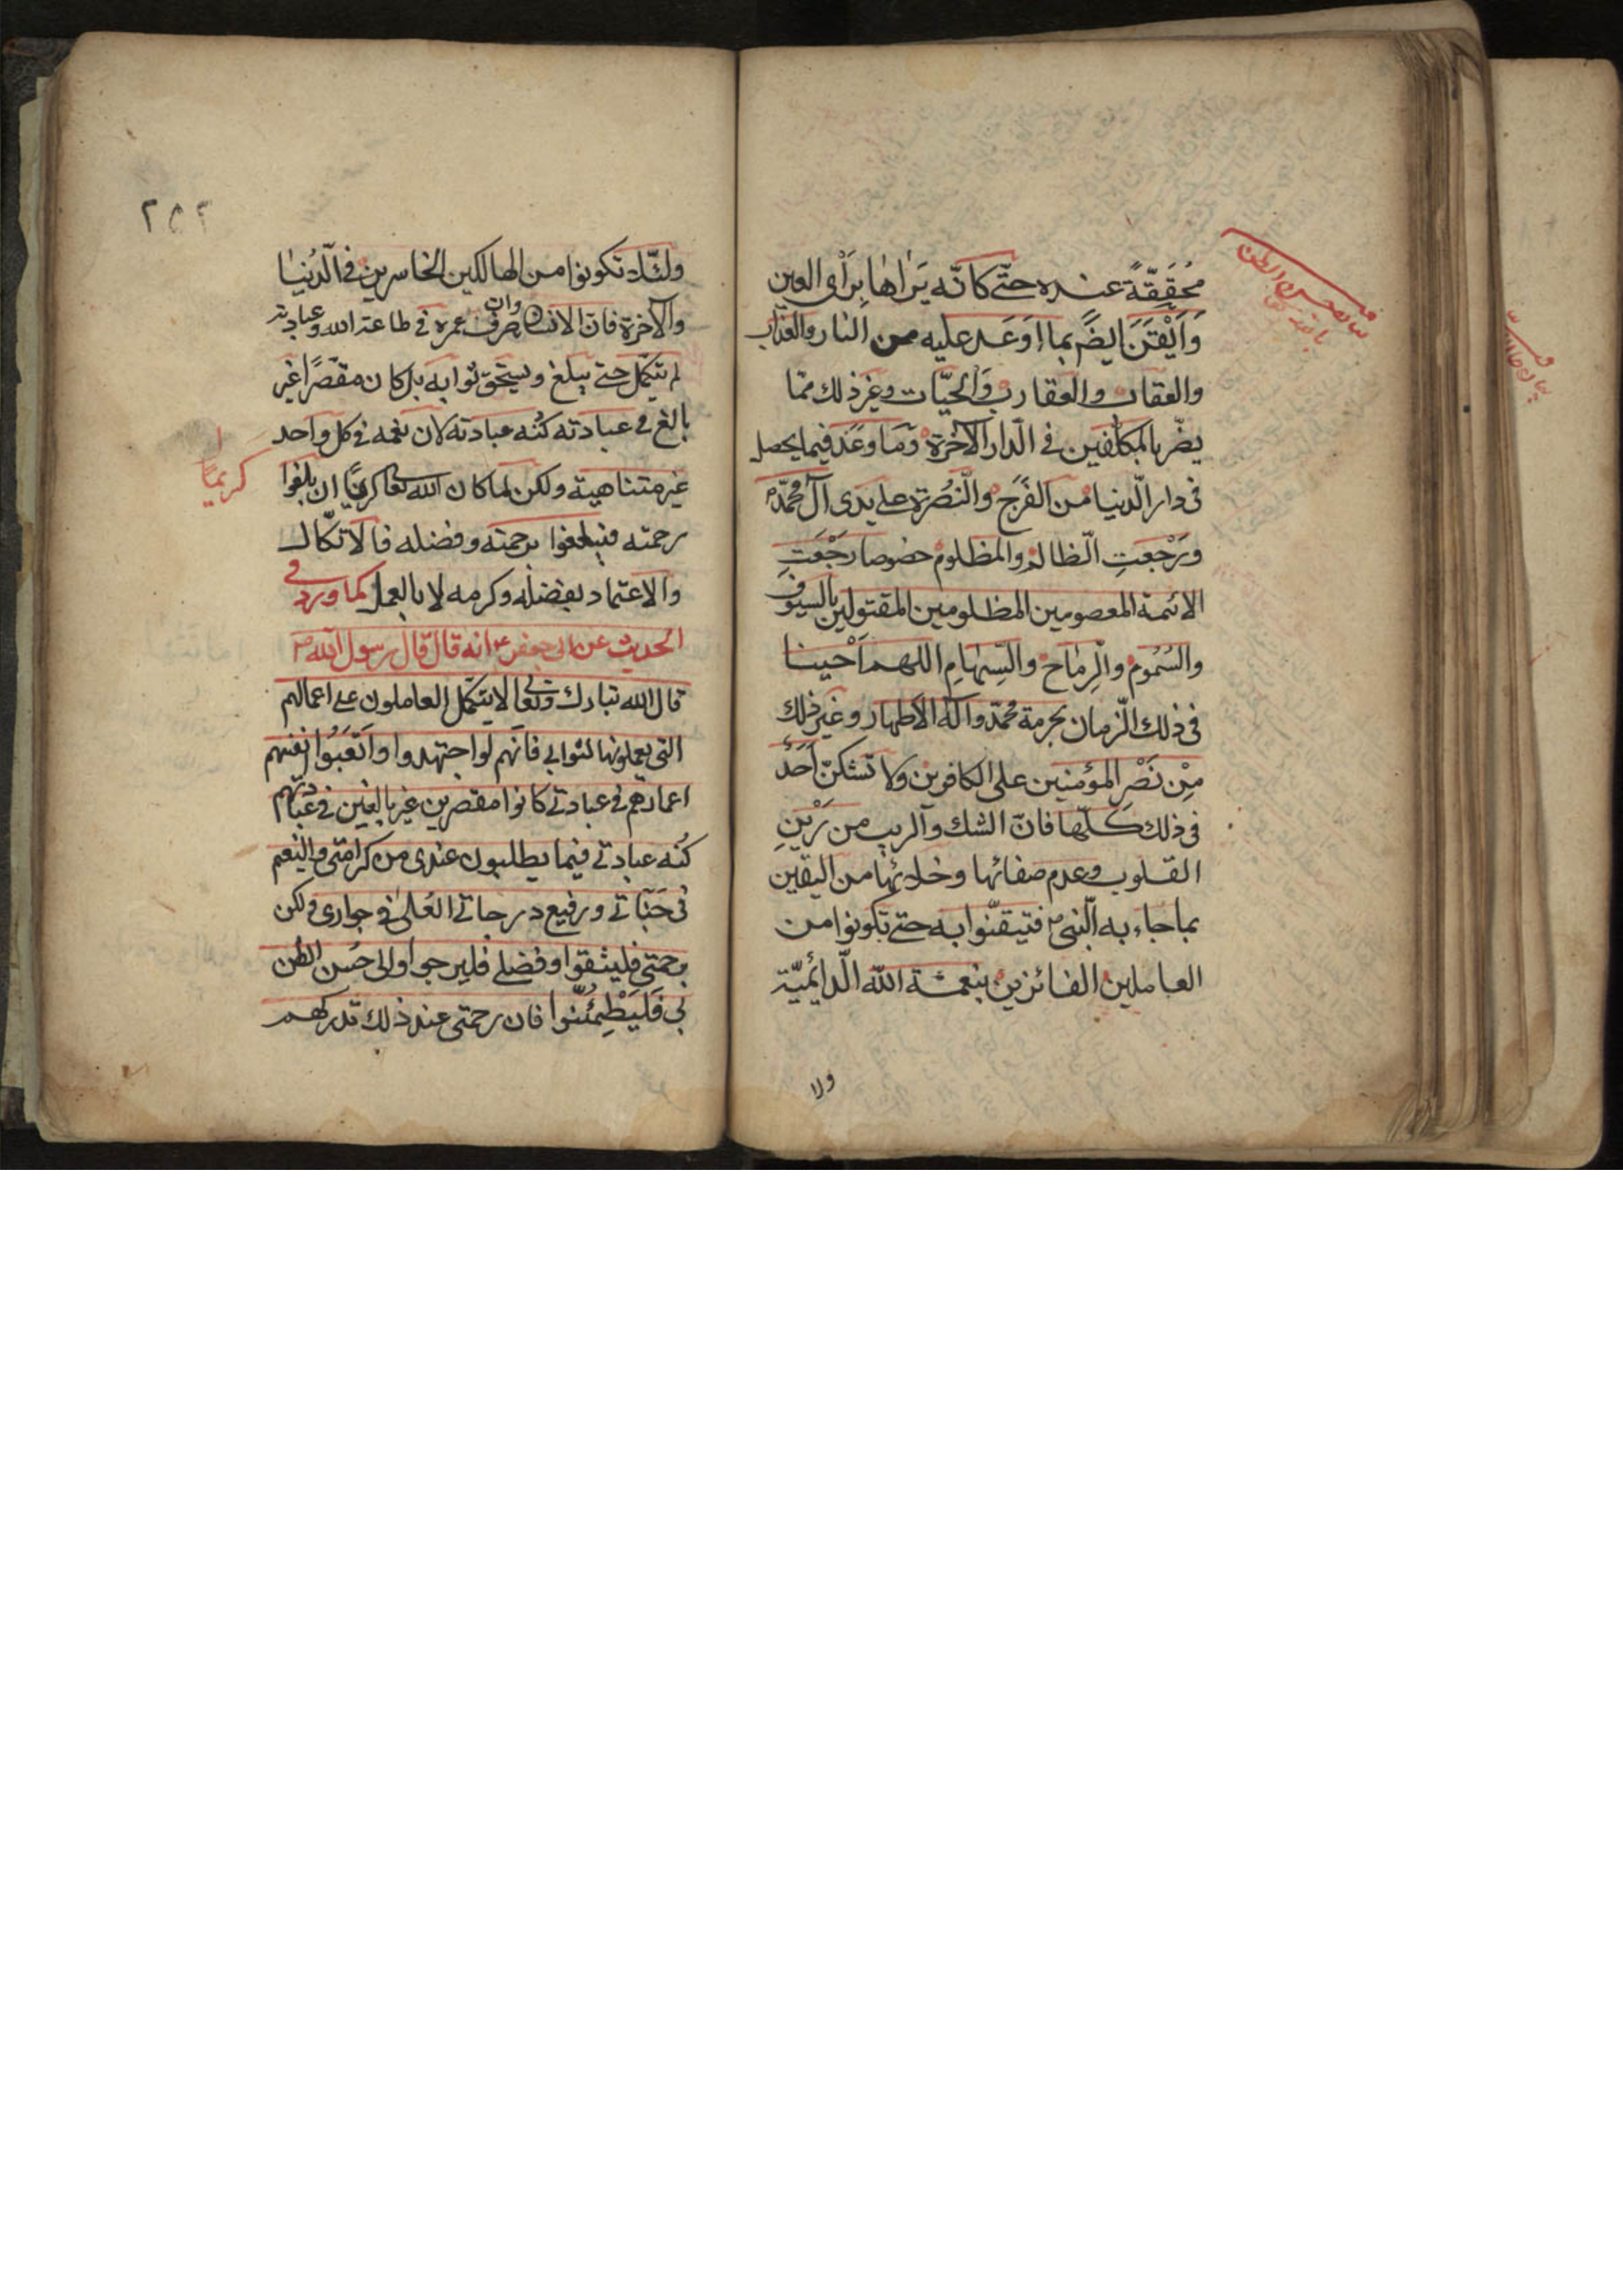 مُحَقَّقَةً عنده حتّى كانّه يَرٰاهٰا بِرَأْى العين
وَاَيْقَنَ ايضً بما اوَعَد عليه من النار والعذاب
والعقاب والعقارب والحيّات وغير ذلك ممّا
يضّر بالمكلّفين فى الدّار الآخرة وَمَا وعَد فيما يحصل
فى دار الدّنيا من الفَرَج والنّصُرَة على يدى آل محمّد
ورَجْعتِ الظالم والمظلوم خصوصا رَجْعَتِ
الائمة المعصومين المظلومين المقتولين بالسيوف
والسُمُوم والرِماٰح والسِّهٰامِ اللهم اَحْينا
فى ذلك الزّمان بحرمة محمّد وآله الاطهار وغير ذلك
مِنْ نَصْر المؤمنين على الكافرين ولا تشكنّ اَحَدٌ
فى ذلك كلّها فانّ الشك والريب من رَيْنِ
القلوب وعدم صفائها وخلائها من اليقين
بما جاء به النّبى فتيقّنوا به حتى تكونوا من
العاملين الفائزين بنعمة الله الدّائميّة
ولا
بحسن الظن
٢٥٢
ولئلّا تكونوا من الهالكين الخاسرين فى الدُنيٰا
والآخرة فانّ الانسان وان صرف عمره فى طاعة الله وعبادته
لم يتكّل حتى يبلغ ويستحق ثوابه بل كان مقصّرًا غير
بالغ فى عبادته كُنْه عبادته لان نعمه فى كل واحد
غير متناهية ولكن لما كان الله تعا كريمًا ان بلغوا
كريمًا
رحمته فبلغوا برحمته وفضله فالاتكّال
والاعتماد بفضله وكرمه لا بالعمل كما ورد فى
الحديث عن ابى جعفر ع انه قال قال رسول الله ص
قال الله تبارك وتعالى لا يتّكل العاملون على اعمالهم
التى يعملونها لثوابى فانّهم لو اجتهدوا واَتْعَبُوا انفسهم
اعمارهم فى عبادتى كانوا مقصرين غير بالغين فى عبادتهم
كُنْه عبادتى فيما يطلبون عندى من كرامتى والنّعيم
فى جَنّاتى ورفيع درجاتى العُلٰى فى جوارى ولكن
برحمتى فليثقوا وفضلى فليرجوا والى حُسن الظن
بى فَليَطْمِئنّوا فان رحمتى عند ذلك تدركهم